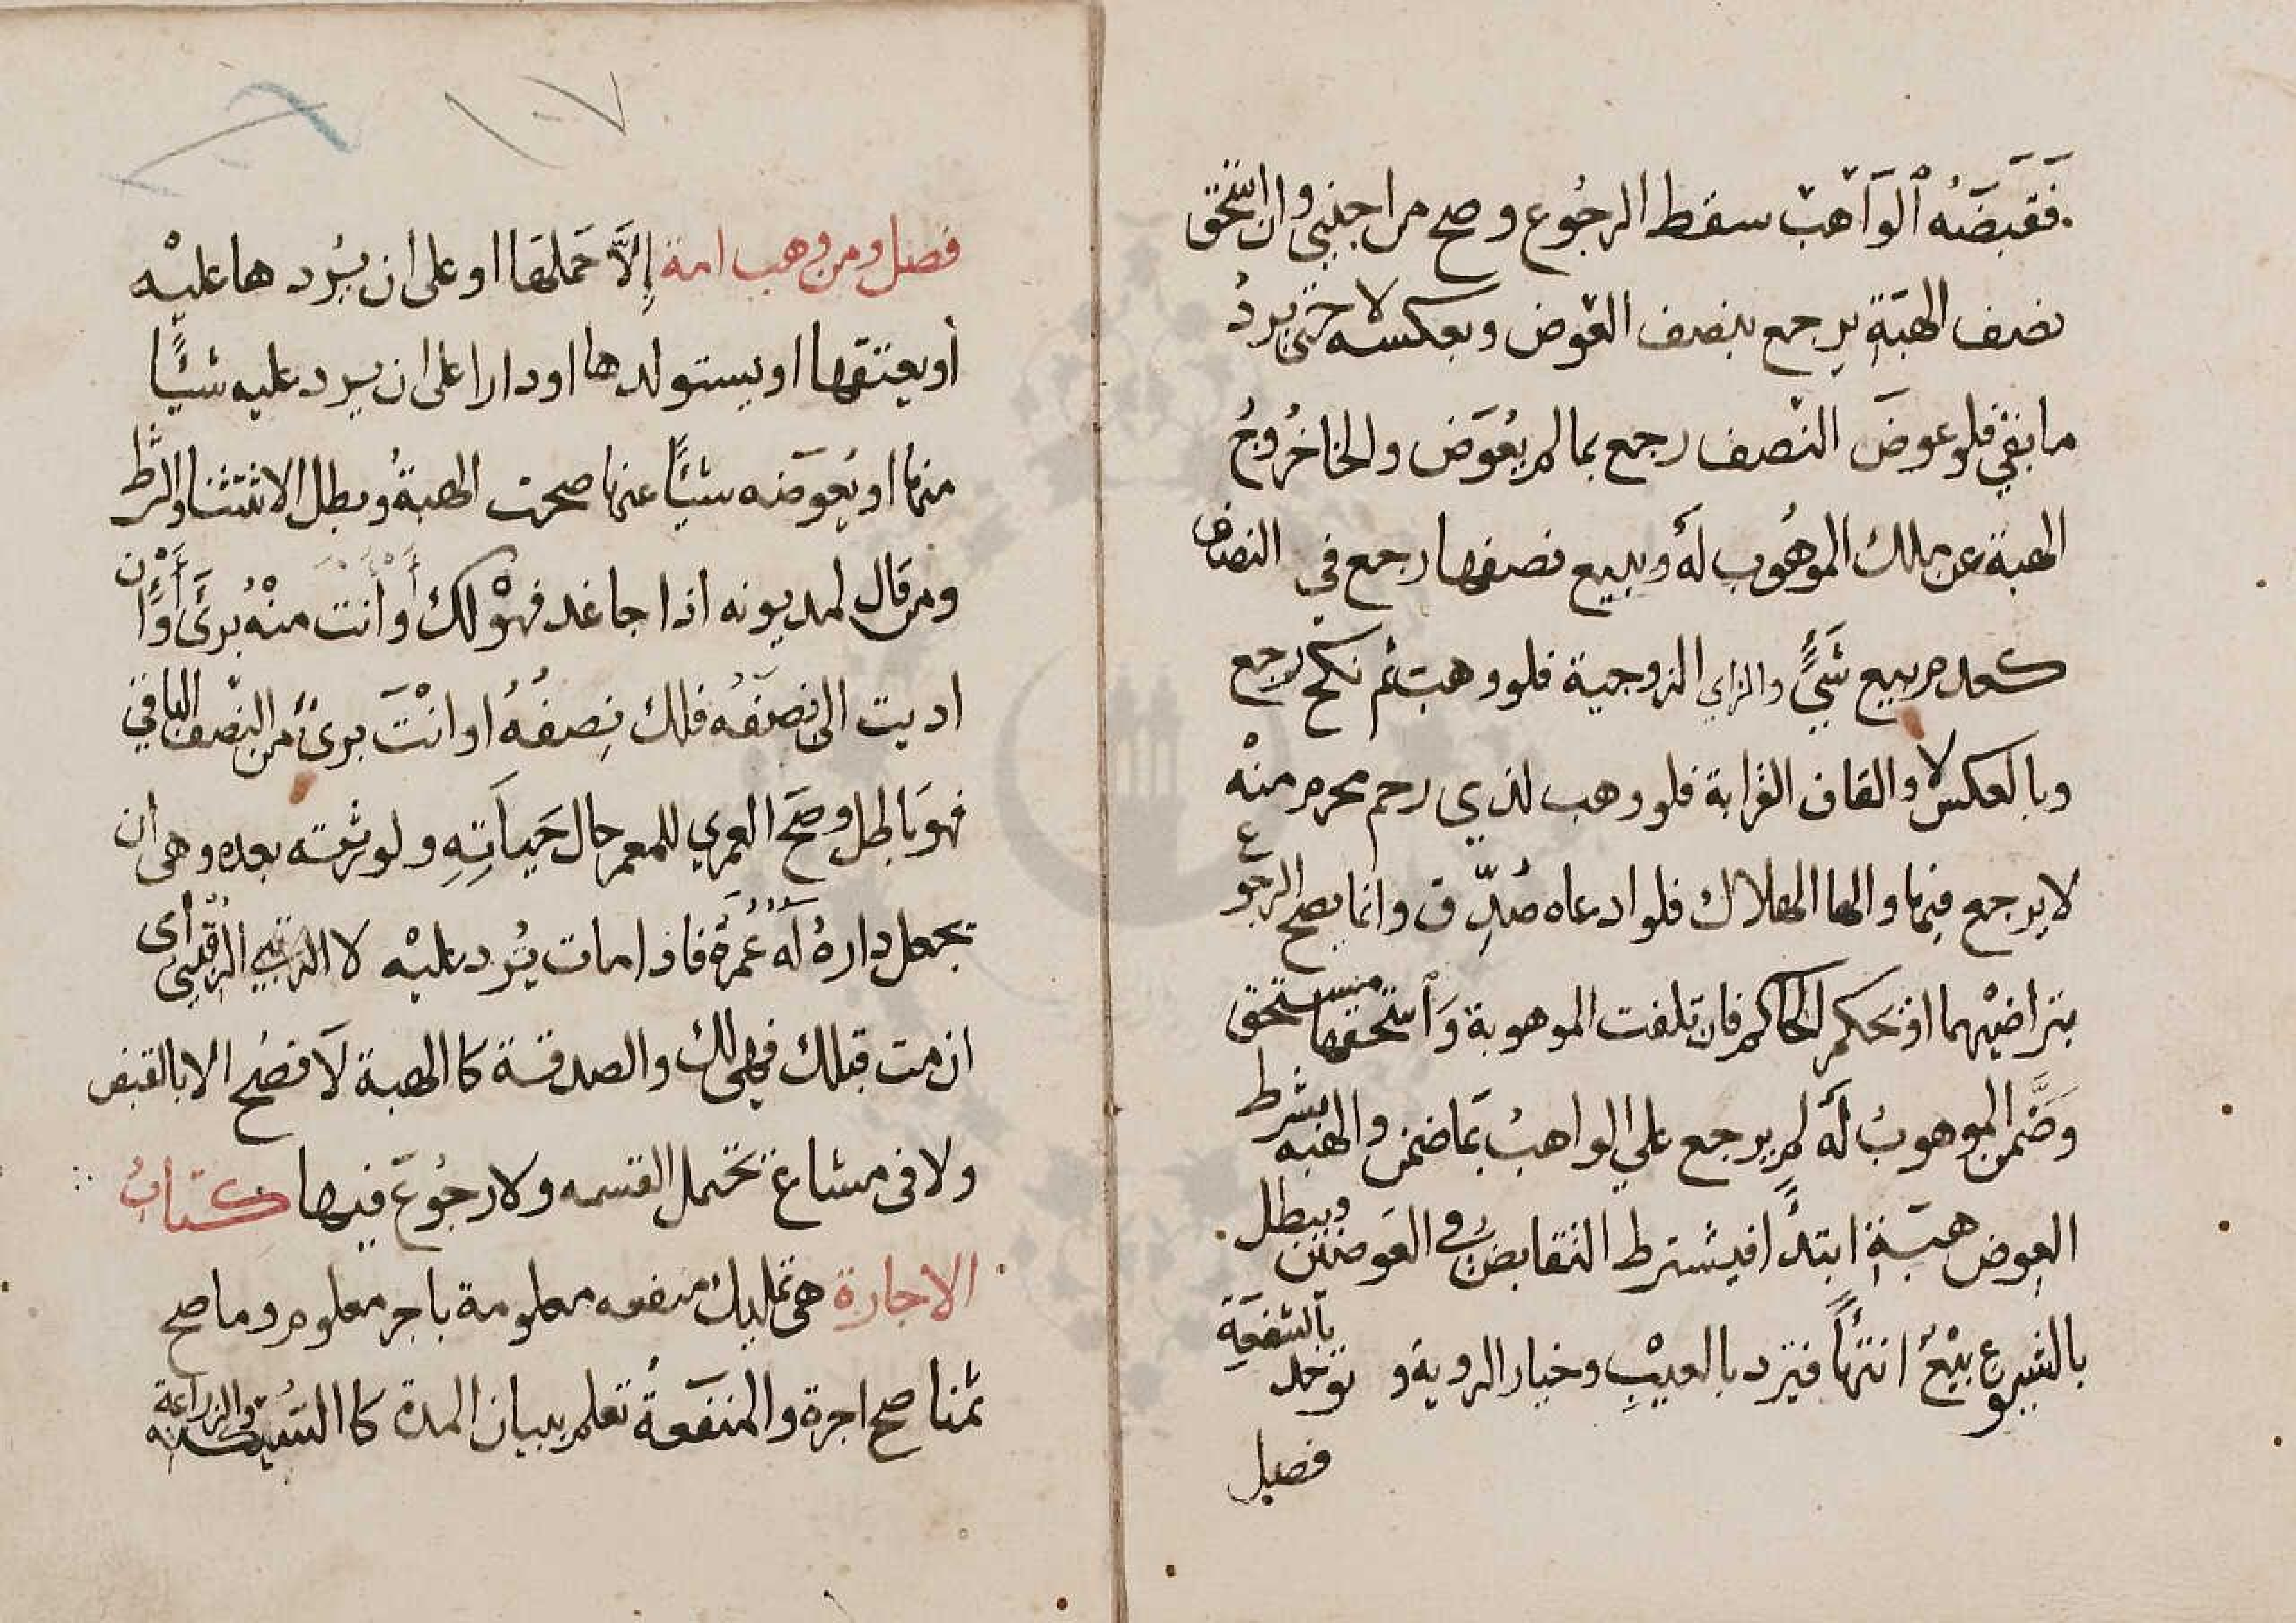 فَقَبَضَهُ الوَاهب سقط الرجُوع وصح من اجنبي وان استحق
نصف الهبَةِ يرجع بنصف العوض وبعكسه لا حتى يردُ
ما بقي فلو عوضَ النصف رجع بما لم يعُوَض والخا خُروجُ
الهبة عن ملك الموهُوب لهُ وببيع نصفها رجع في النصف
كعدم بيع شَيءٍ والزاي الزوجية فلو وهبت ثم نكح رجع
وبالعكس لا والقاف القرابة فلو وهب لذي رحم محرم منْه
لا يرجع فيها والها الهلاك فلو ادعاه صُدِّق وانما يصح الرجوع
بتراضيْهما او بحكم الحاكم فان تلفت الموهوبة وَاستحقها مستحق
وَضَّمن الموهوبُ لهَ لم يرجع على الواهبُ بمَا ضمن والهبه بشرط
العِوض هبَةِ ابتدًا فيشترط التقابض في العَوضيْن ويبطل
بالشيوع بيْعُ انتهاً فترد بالعيْبِ وخيار الروية و توخد بالشفعَةِ
فصل
١٠٧
فصل ومن وهب امة إِلاَّ حَملهَا او على ان يرُد ها عليْه
أو يعتقها او يستولدها او دارا على ان يرد عليه شيئًا
منها او يُعوَضه شيئًا عنها صحت الهبةُ وبطل الاستثنا والشرط
ومن قال لمديونه اذا جا غد فهوْ لك أو أنت منْهُ بريَ أو أن
اديت الي نصفَهُ فلك نِصفُهُ او انْتَ برئٌ من النصف الباقي
فهوَ باطل وصَح العمري للمعمر حال حَياَتِهِ ولورثته بعده وهى ان
يجعل دارهُ لَهُ عُمرُهُ فاذا مات يرُد عليْه لا الرقبي اى
ان مت قبلك فهى لك والصدقة كالهبة لاَ تصُح الا بالقبض
ولا فى مشاع تحتمل القسمه ولا رجُوعَ فيها كتابُ
الاجارة هى تمليك منفعه معلومة باجر معلوم وما صح
ثمنا صح اجرة والمنفَعةُ تعلم ببيان المدة كالسُكنى والزراعة